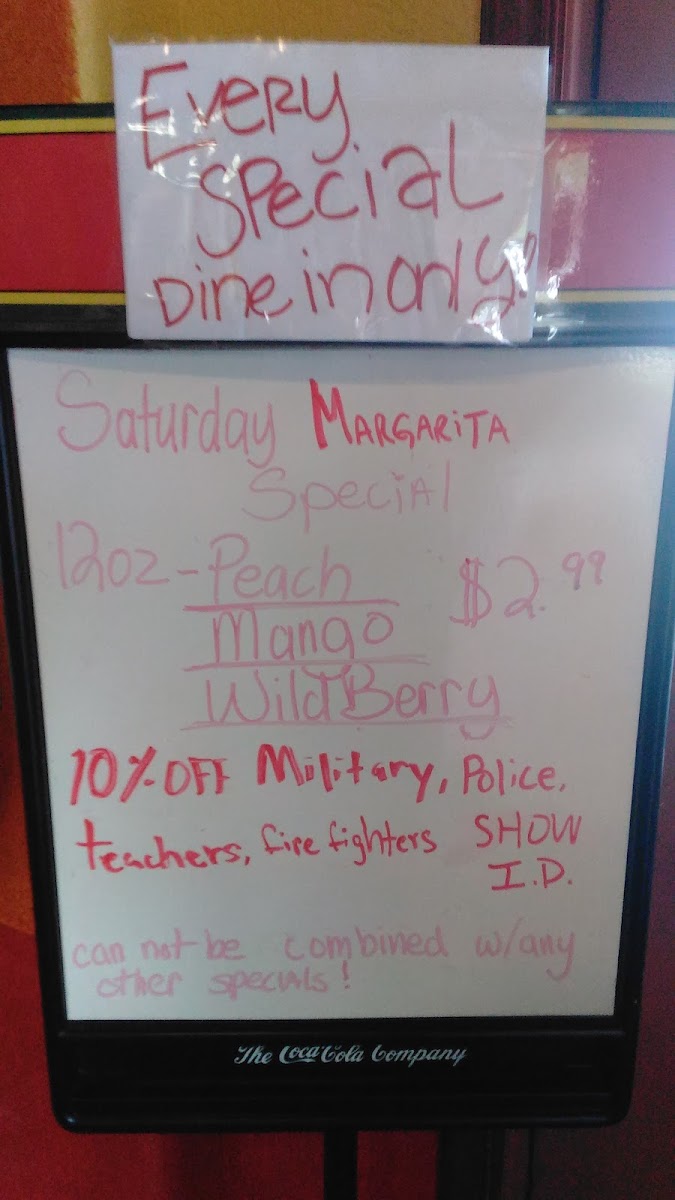 Every
special
Dine in only!
Saturday MARGARITA
Special
12oz - Peach $2.99
Mango
Wild Berry
10% OFF Military, Police,
teachers, fire fighters SHOW
I.D.
can not be combined w/any
other specials!
The Coca-Cola Company